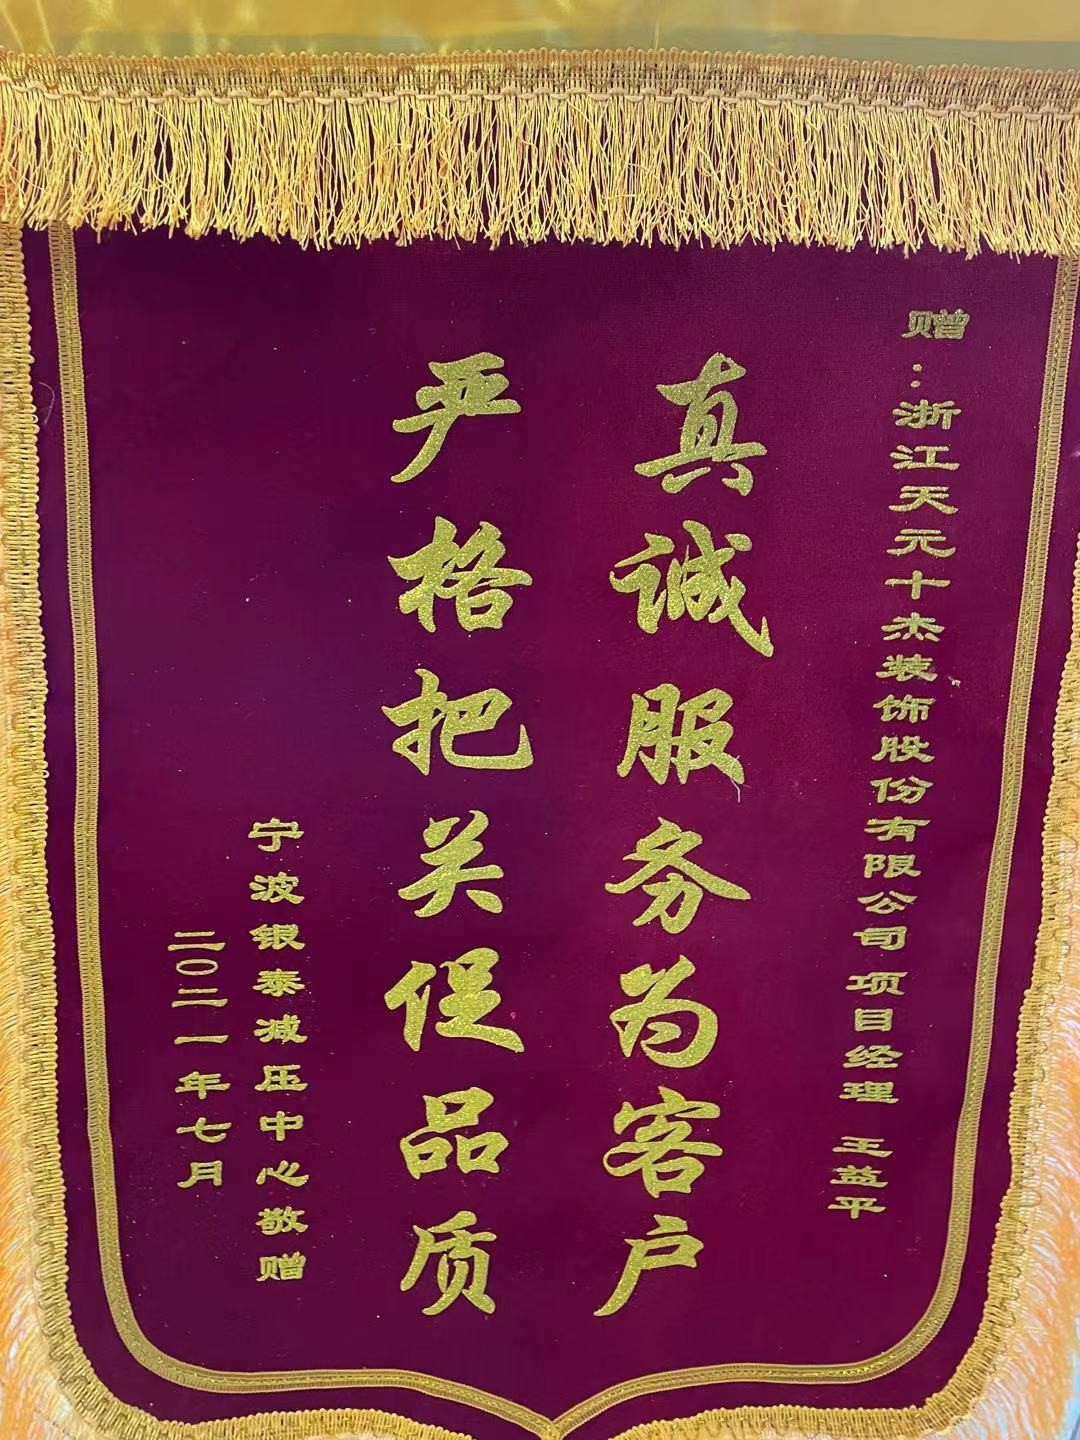 赠：浙江天元十杰装饰股份有限公司项目经理 王益平
真诚服务为客户
严格把关促品质
宁波银泰减压中心敬赠
二〇二一年七月